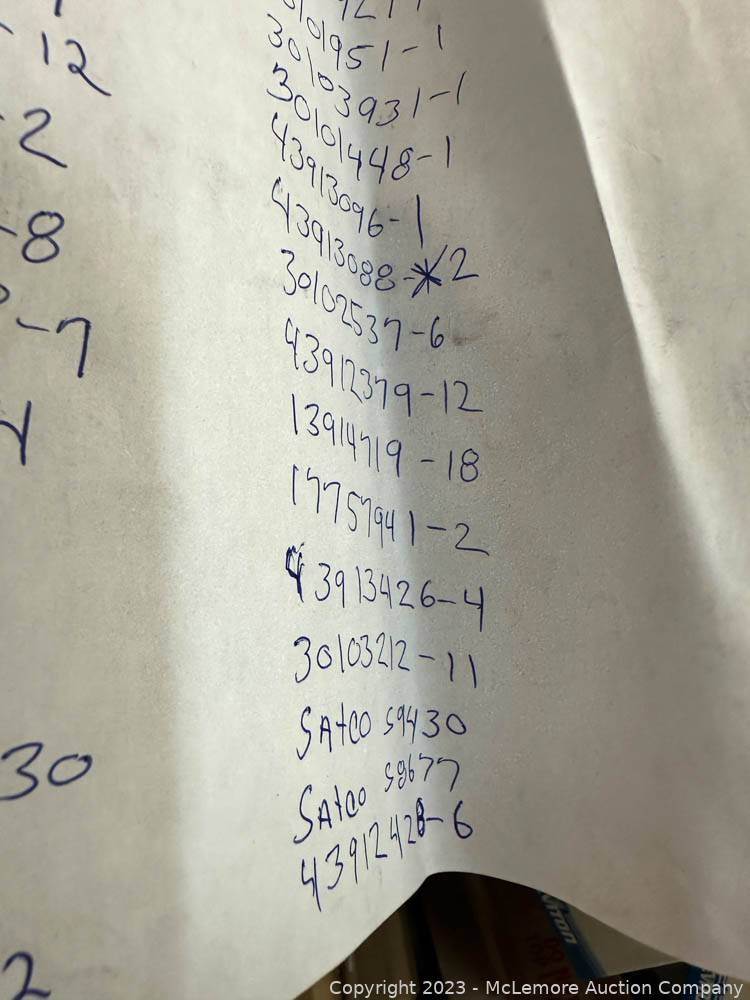 12
2
-8
-7
30
2
30101951-1
30103931-1
30101448-1
43913096-1
43913088-2
30102537-6
43912379-12
13914719-18
17757941-2
43913426-4
30103212-11
SAtCO S9430
SAtCO S8677
43912428-6
Copyright 2023 - McLemore Auction Company